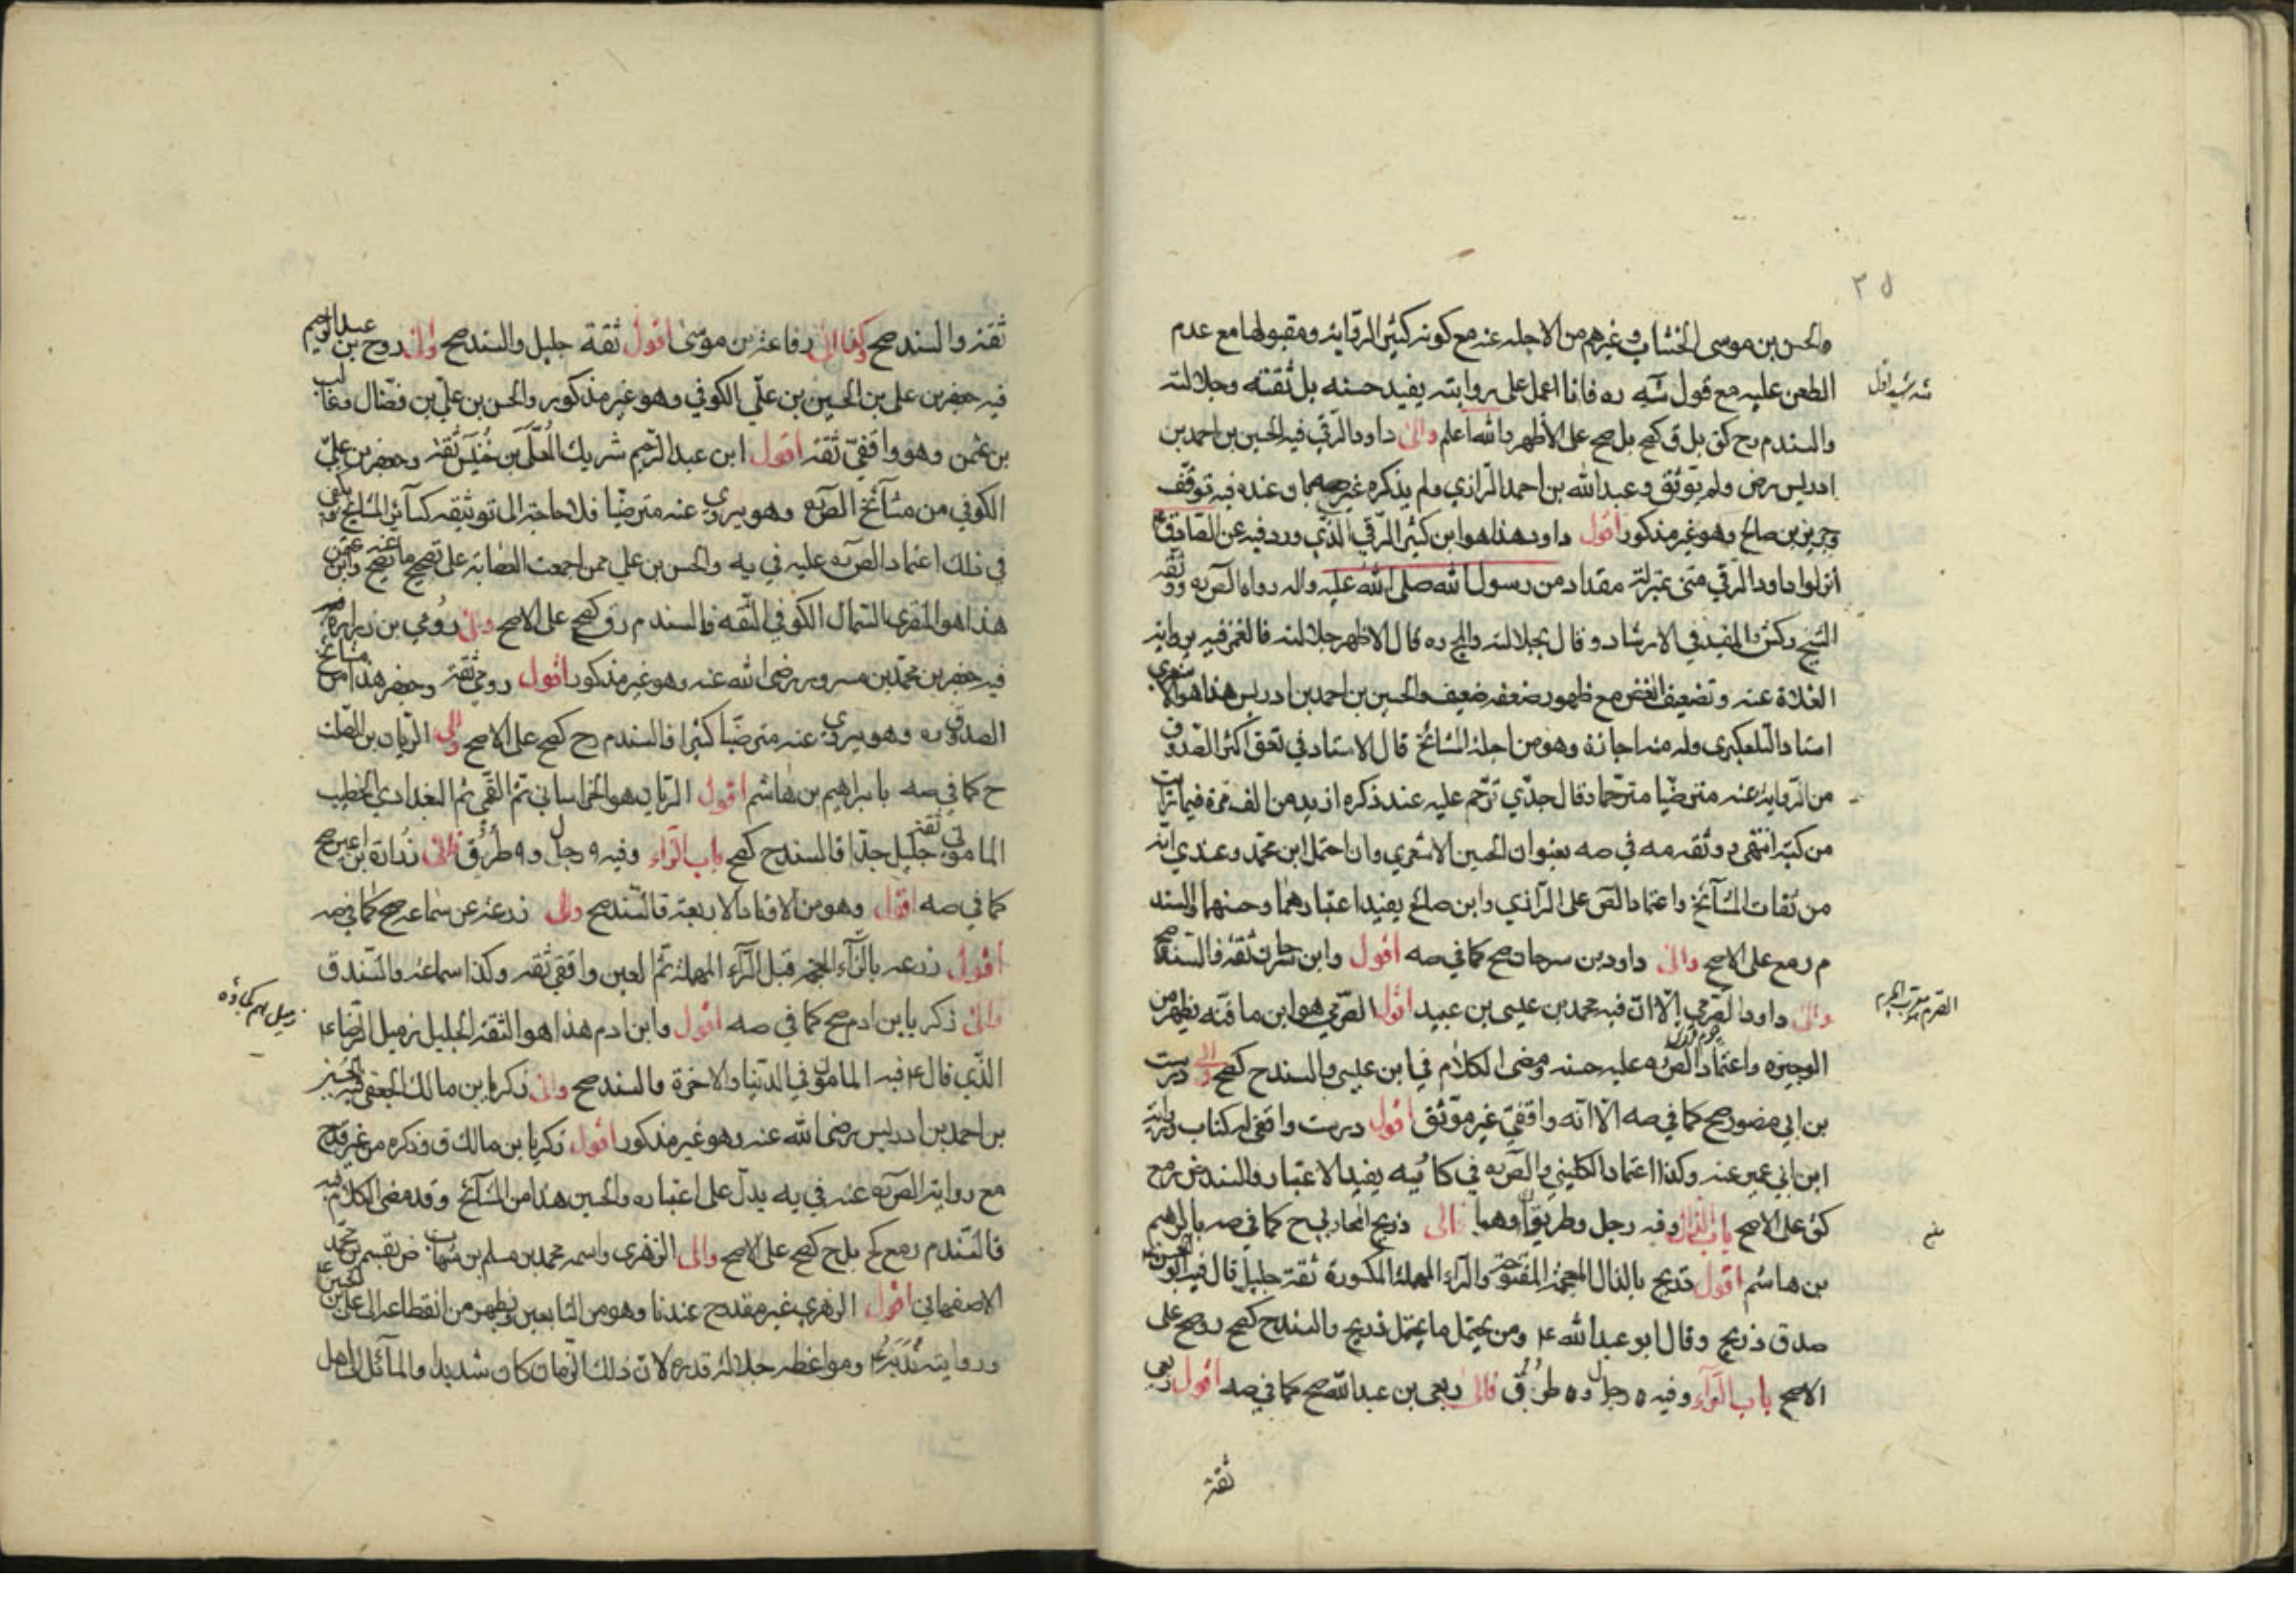 والحسن بن موسى الخشاب وغيرهم من الاجلة عنه مع كونه كثير الرواية ومقبولها مع عدم
الطعن عليه مع قول شه ره فانا اعمل على روايته يفيد حسنه بل ثقته وجلالته
والسند م ح كق بل ق كصح بل صح على الأظهر والله اعلم والى داود الرقي فيه الحسين بن احمد بن
ادريس رض ولم يوثق وعبدالله بن احمد الرازي ولم يذكره غير صه وعنده فيه توقف
وحريز بن صالح وهو غير مذكور اقول داود هذا هو ابن كثير الرقي الذي ورد فيه عن الصادق ع
أنزلوا داود الرقي مني بمنزلة مقداد من رسول الله صلى الله عليه واله رواه الص ره ووثقه
الشيخ وكش والمفيد في الارشاد وقال بجلالته والمج ره قال الاظهر جلالته فالغمز فيه برواية
الغلاة عنه وتضعيف الغض مع ظهور ضعفه ضعيف والحسين بن احمد بن ادريس هذا هو الاشعري
استاد التلعكبري وله منه اجازة وهو من اجلة المشائخ قال الاستاد في تعق اكثر الصدوق
من الرواية عنه مترضيا مترحما وقال جدي ترحم عليه عند ذكره ازيد من الف مرة فيما رايت
من كتبه انتهى ووثقه مه في صه بعنوان الحسين الاشعري وان احتمل ابن محمد وعندي انه
من ثقات المشآئخ واعتماد الص على الرازي وابن صالح يفيد اعتبارهما وحسنهما والسند
م ر مع على الاصح والى داود بن سرحان صح كما في صه اقول وابن سرحان ثقة فالسند صح
والى داود الصرمي إلا ان فيه محمد بن عيسى بن عبيد اقول الصرمي هو ابن مافنه يظهر من
الوجيزه واعتماد الص ره عليه حسنه ومضى الكلام في ابن عيسى والسند ح كصح والى درست
بن ابي منصور صح كما في صه الا انه واقفي غير موثق اقول درست واقفي له كتاب ورواية
ابن ابي عمير عنه وكذا اعتماد الكليني والص ره في كا يه يفيد الاعتبار والسند ض ر مح
كق على الاصح باب الذال وفيه رجل وطريقان وهما فالى ذريح المحاربي ح كما في صه بابراهيم
بن هاشم اقول ذريح بالذال المعجمة المفتوحة والراء المهملة المكسورة ثقة جليل قال فيه ابو الحسن ع
صدق ذريح وقال ابو عبد الله ع ومن يحتمل ما يحتمل ذريح والسند ح كصح ر وصح على
الاصح باب الرآء وفيه ٥ رجال و٥ طرق فالى ربعي بن عبدالله صح كما في صه اقول ربعي
ثقة
ثقة والسند صح وكذا الى رفاعة بن موسى اقول ثقة جليل والسند صح والى روح بن عبد الرحيم
فيه جعفر بن على بن الحسين بن علي الكوفي وهو غير مذكور والحسن بن علي بن فضال وغالب
بن عثمن وهو واقفي ثقة اقول ابن عبد الرحيم شريك المعلى بن خنيس ثقة وجعفر بن علي
الكوفي من مشآئخ الص ره وهو يروي عنه مترضيا فلا حاجة الى توثيقه كسآئر المشايخ يكفي
في ذلك اعتماد الص ره عليه في يه والحسن بن علي ممن اجمعت العصابة على تصحيح ما يصح عنه وابن عثمن
هذا هو المنقري السمال الكوفي الثقة فالسند م رق كصح على الاصح والى رومي بن زرارة
فيه جعفر بن محمد بن مسرور رضى الله عنه وهو غير مذكور اقول رومي ثقة وجعفر هذا من مشائخ
الصدوق ره وهو يروي عنه مترضيا كثيرا فالسند م ح كصح على الاصح والى الريان بن الصلت
ح كما في صه بابراهيم بن هاشم اقول الريان هو الخراساني ثم القمي ثم البغدادي الخطيب
الماموني ثقة جليل جدا فالسند ح كصح باب الزاء وفيه ٩ رجال و٩ طرق فالى زرارة بن اعين صح
كما في صه اقول وهو من الاوتاد الاربعة فالسند صح والى زرعة عن سماعة صح كما في صه
اقول زرعه بالزآء المعجمة قبل الرآء المهملة ثم العين واقفي ثقه وكذا سماعة والسند ق
والى زكريا بن ادم صح كما في صه اقول وابن ادم هذا هو الثقة الجليل زميل الرضاء ع
الذي قال ع فيه المامون في الدنيا والاخرة والسند صح والى زكريا بن مالك الجعفي فيه الحسين
بن احمد بن ادريس رضى الله عنه وهو غير مذكور اقول زكريا بن مالك ق وذكره من غير قدح
مع رواية الص ره عنه في يه يدل على اعتباره والحسين هذا من المشآئخ وقد مضى الكلام فيه
فالسند م ر مع كح بل ح كصح على الاصح والى الزهري واسمه محمد بن مسلم بن شهاب ض بقسم بن محمد
الاصفهاني اقول الزهري غير مقدوح عندنا وهو من التابعين ويظهر من انقطاعه الى على بن الحسين ع
وروايته ومواعظه جلالة قدره لان ذلك الزمان كان شديدا والمآئل الى اهل